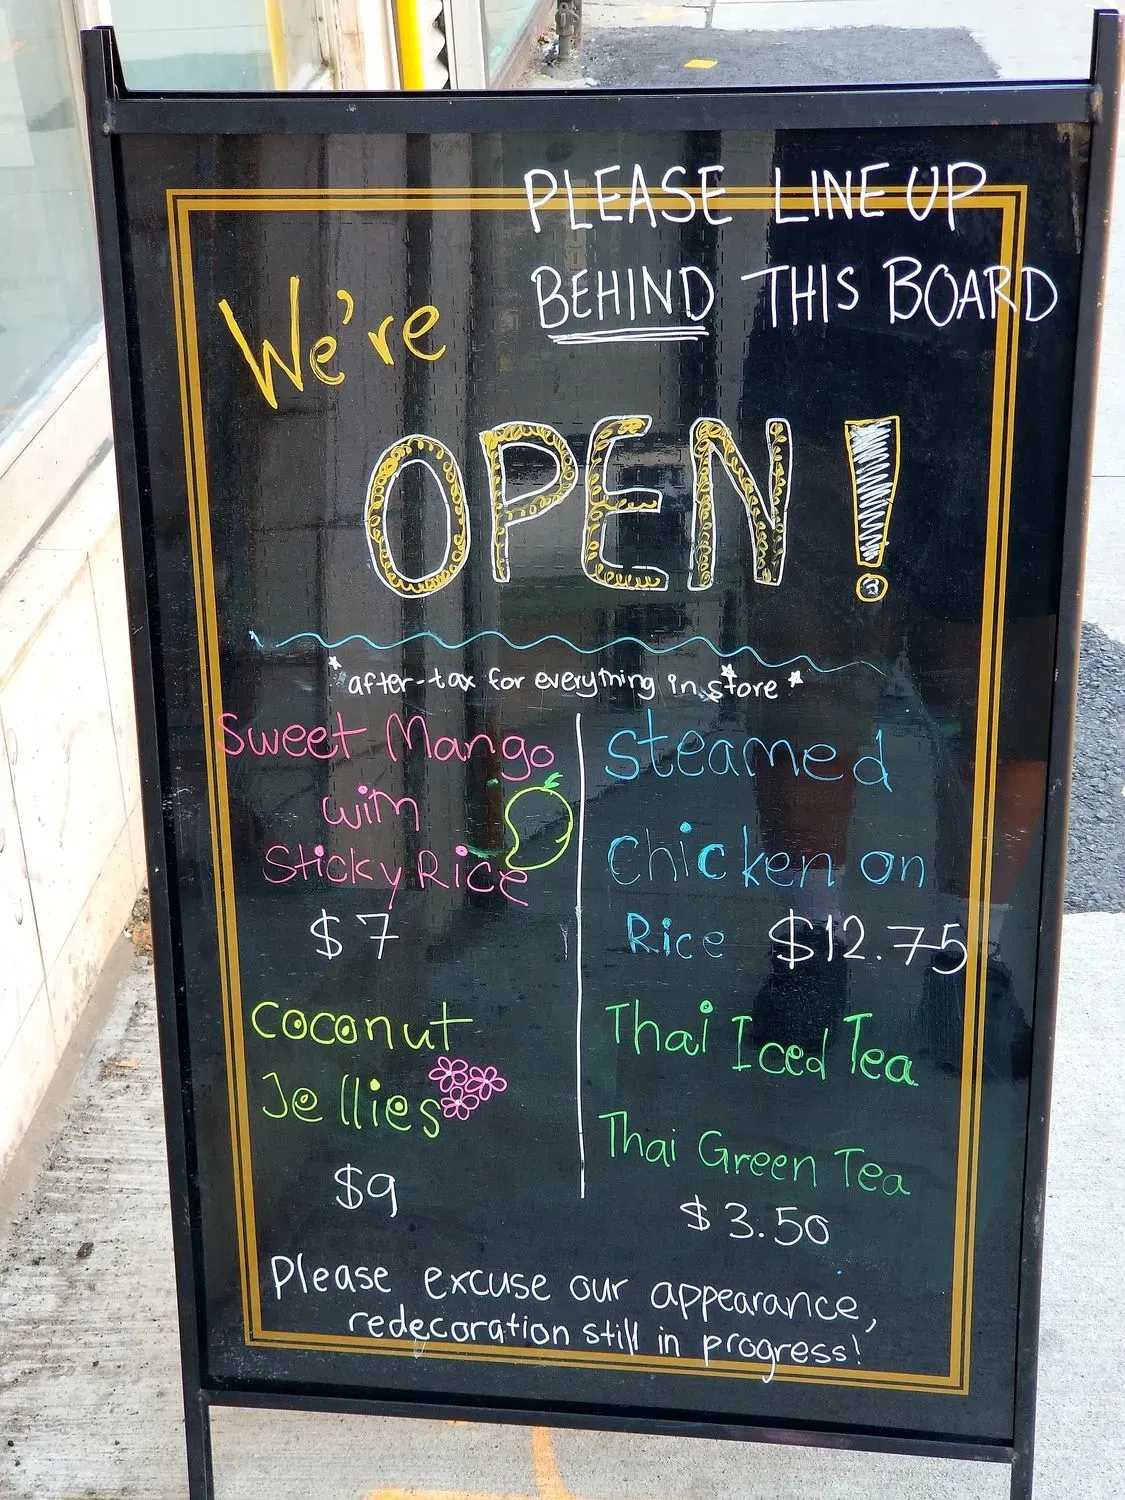 PLEASE LINE UP
BEHIND THIS BOARD
We're
OPEN!
*after-tax for everything in store*
Sweet Mango
with
Sticky Rice
$7
Coconut
Jellies
$9
Steamed
Chicken on
Rice $12.75
Thai Iced Tea
Thai Green Tea
$3.50
Please excuse our appearance,
redecoration still in progress!